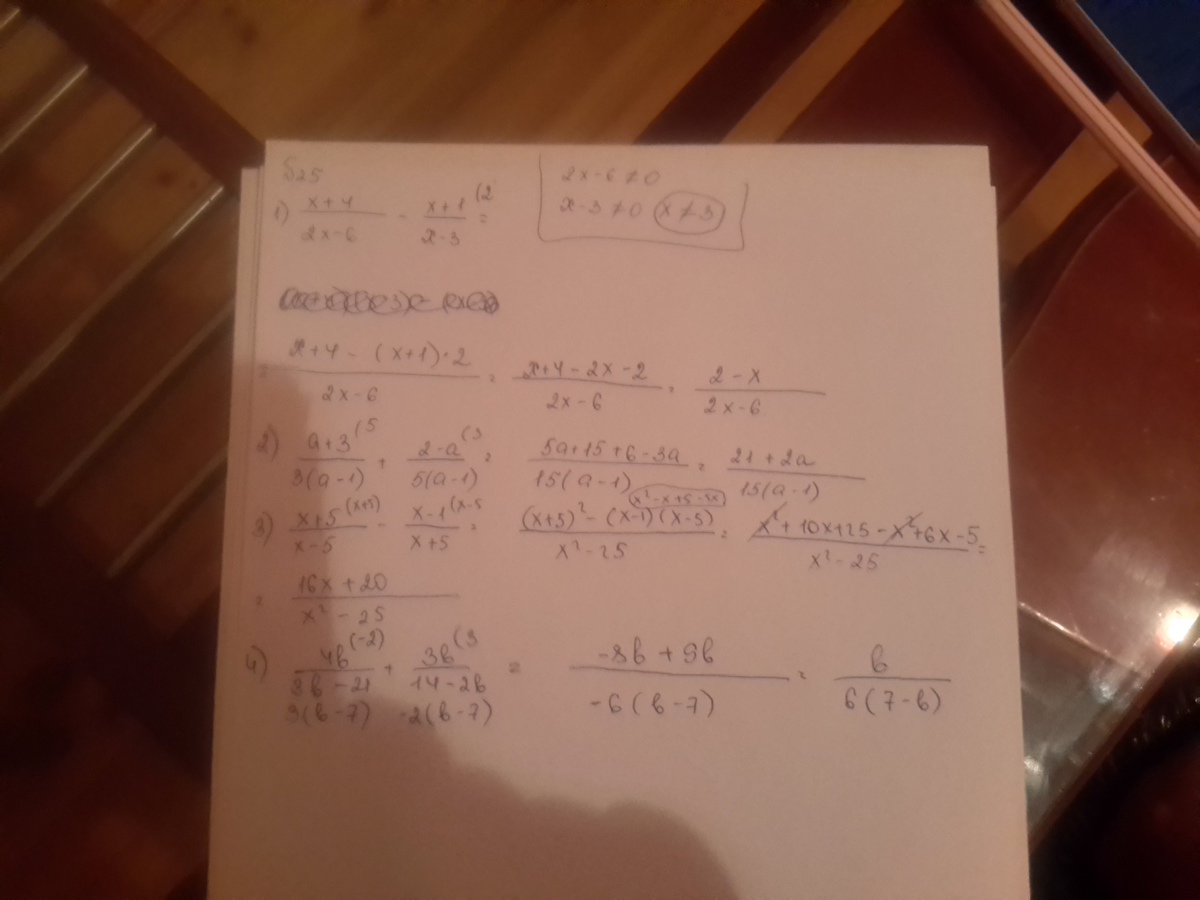 525
2x-6≠0
x-3≠0 x≠3
1) (x+4)/(2x-6) - (x+1)/(x-3) (2 =
= (x+4-(x+1)·2)/(2x-6) = (x+4-2x-2)/(2x-6) = (2-x)/(2x-6)
2) (a+3)/(3(a-1)) (5 + (2-a)/(5(a-1)) (3 = (5a+15+6-3a)/(15(a-1)) = (21+2a)/(15(a-1))
3) (x+5)/(x-5) (x+5) - (x-1)/(x+5) (x-5 = ((x+5)²-(x-1)(x-5))/(x²-25) = (x²+10x+25-x²+6x-5)/(x²-25) =
= (16x+20)/(x²-25)
4) 4b/(3b-21) (-2) + 3b/(14-2b) (3 = (-8b+9b)/(-6(b-7)) = b/(6(7-b))
3(b-7) -2(b-7)